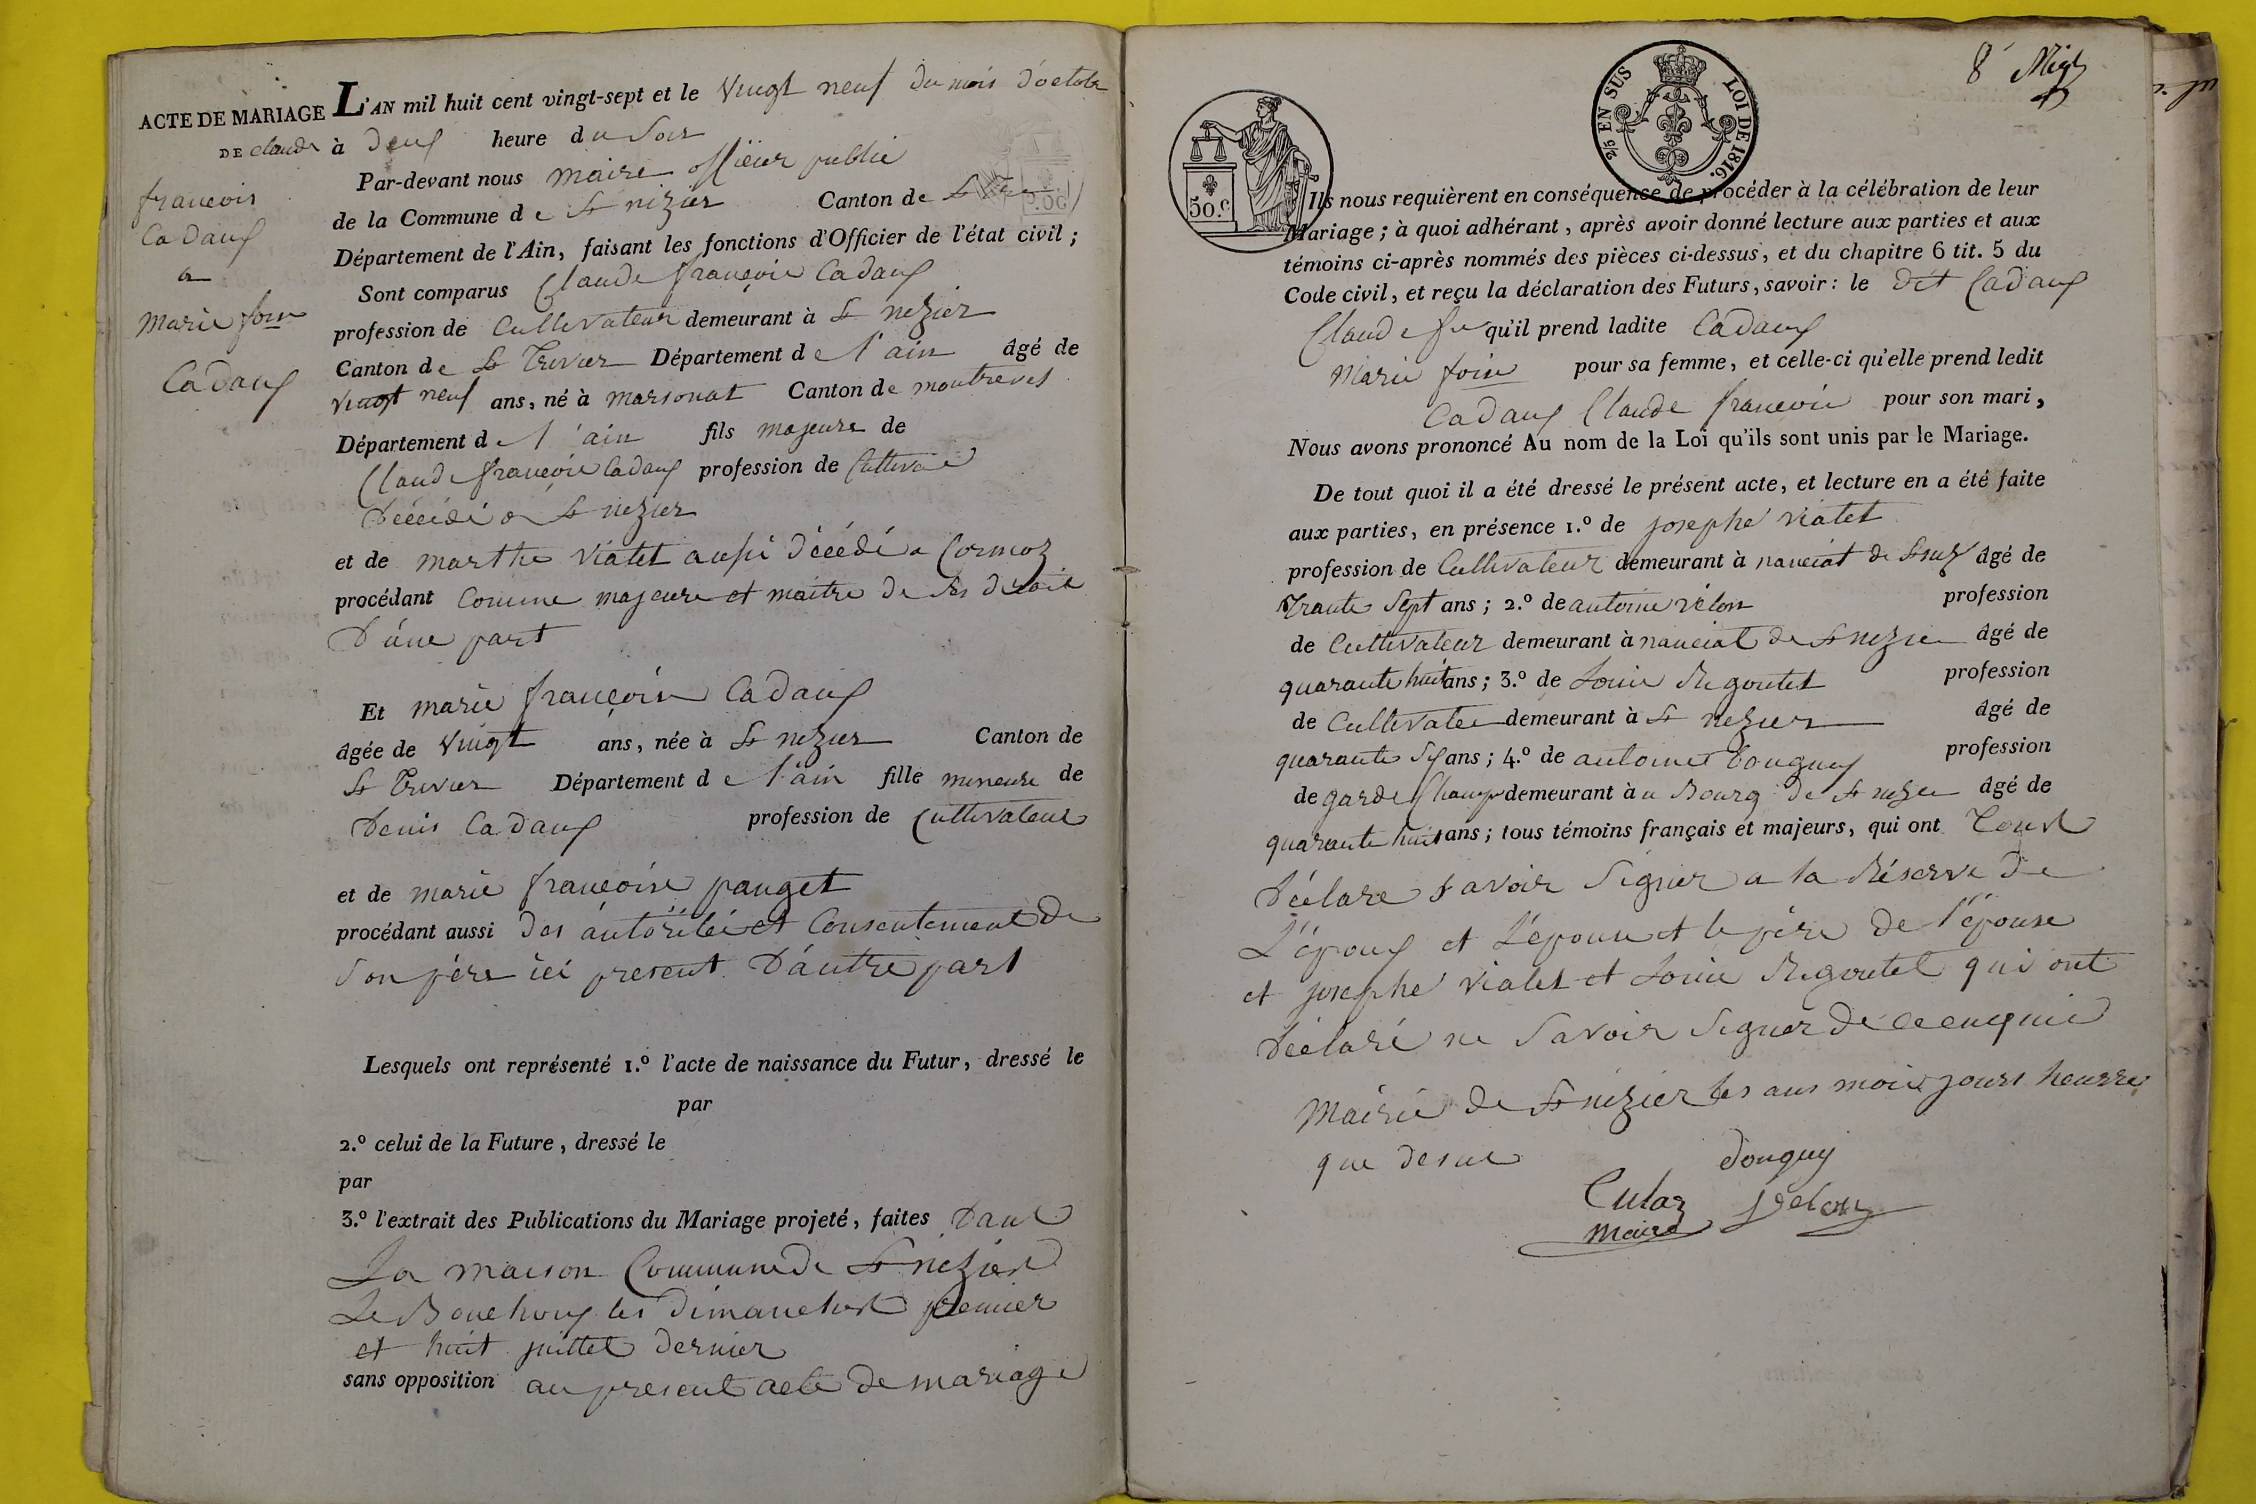 ACTE DE MARIAGE
DE claude
francois
Cadaux
a
Marie foise
Cadaux
L'AN mil huit cent vingt-sept et le vingt neuf du mois d'octobre
à deux heure du Soir
Par-devant nous maire officier public
de la Commune de St nizier Canton de St
Département de l'Ain, faisant les fonctions d'Officier de l'état civil;
Sont comparus Claude francois Cadaux
profession de Cultivateur demeurant à St nizier
Canton de St Trivier Département de l'ain âgé de
vingt neuf ans, né à marsonat Canton de montrevel
Département de l'ain fils majeure de
Claude francois Cadaux profession de
décédé a St nizier
et de marthe vialet aussi décédé a Cormoz
procédant Comme majeure et maitre de ses droit
D'une part
Et marie francoise Cadaux
âgée de vingt ans, née à St nizier Canton de
St Trivier Département de l'ain fille mineure de
Denis Cadaux profession de Cultivateur
et de marie francoise panget
procédant aussi des autorité et Consentement de
Son père ici present D'autre part
Lesquels ont représenté 1.º l'acte de naissance du Futur, dressé le
par
2.º celui de la Future, dressé le
par
3.º l'extrait des Publications du Mariage projeté, faites Dans
La maison Commune de St nizier
Le Bouchoux les dimanches premier
et huit juillet dernier
sans opposition au present acte de mariage
8e
50.C
2/5 EN SUS LOI DE 1816.
Ils nous requièrent en conséquence de procéder à la célébration de leur
Mariage; à quoi adhérant, après avoir donné lecture aux parties et aux
témoins ci-après nommés des pièces ci-dessus, et du chapitre 6 tit. 5 du
Code civil, et reçu la déclaration des Futurs, savoir: le dit Cadaux
Claude fs qu'il prend ladite Cadaux
Marie foise pour sa femme, et celle-ci qu'elle prend ledit
Cadaux Claude francois pour son mari,
Nous avons prononcé Au nom de la Loi qu'ils sont unis par le Mariage.
De tout quoi il a été dressé le présent acte, et lecture en a été faite
aux parties, en présence 1.º de josephe vialet
profession de Cultivateur demeurant à nanciat de St niz âgé de
Trante Sept ans; 2.º de antoine vélon profession
de Cultivateur demeurant à nanciat de St nizier âgé de
quarante huit ans; 3.º de Louis Rigoutet profession
de Cultivateu demeurant à St nizier âgé de
quarante Six ans; 4.º de antoine douguy profession
de garde Champ demeurant à u Bourg de St nizier âgé de
quarante huit ans; tous témoins français et majeurs, qui ont Tous
Déclare Savoir Signer a la Réserve de
L'époux et L'epouse et le père de l'épouse
et josephe vialet et Louis Rigoutet qui ont
Déclaré ne Savoir Signer de ce enquis
Mairie de St nizier les ans mois jours heurre
que desus
douguy
Culaz Velon
Maire